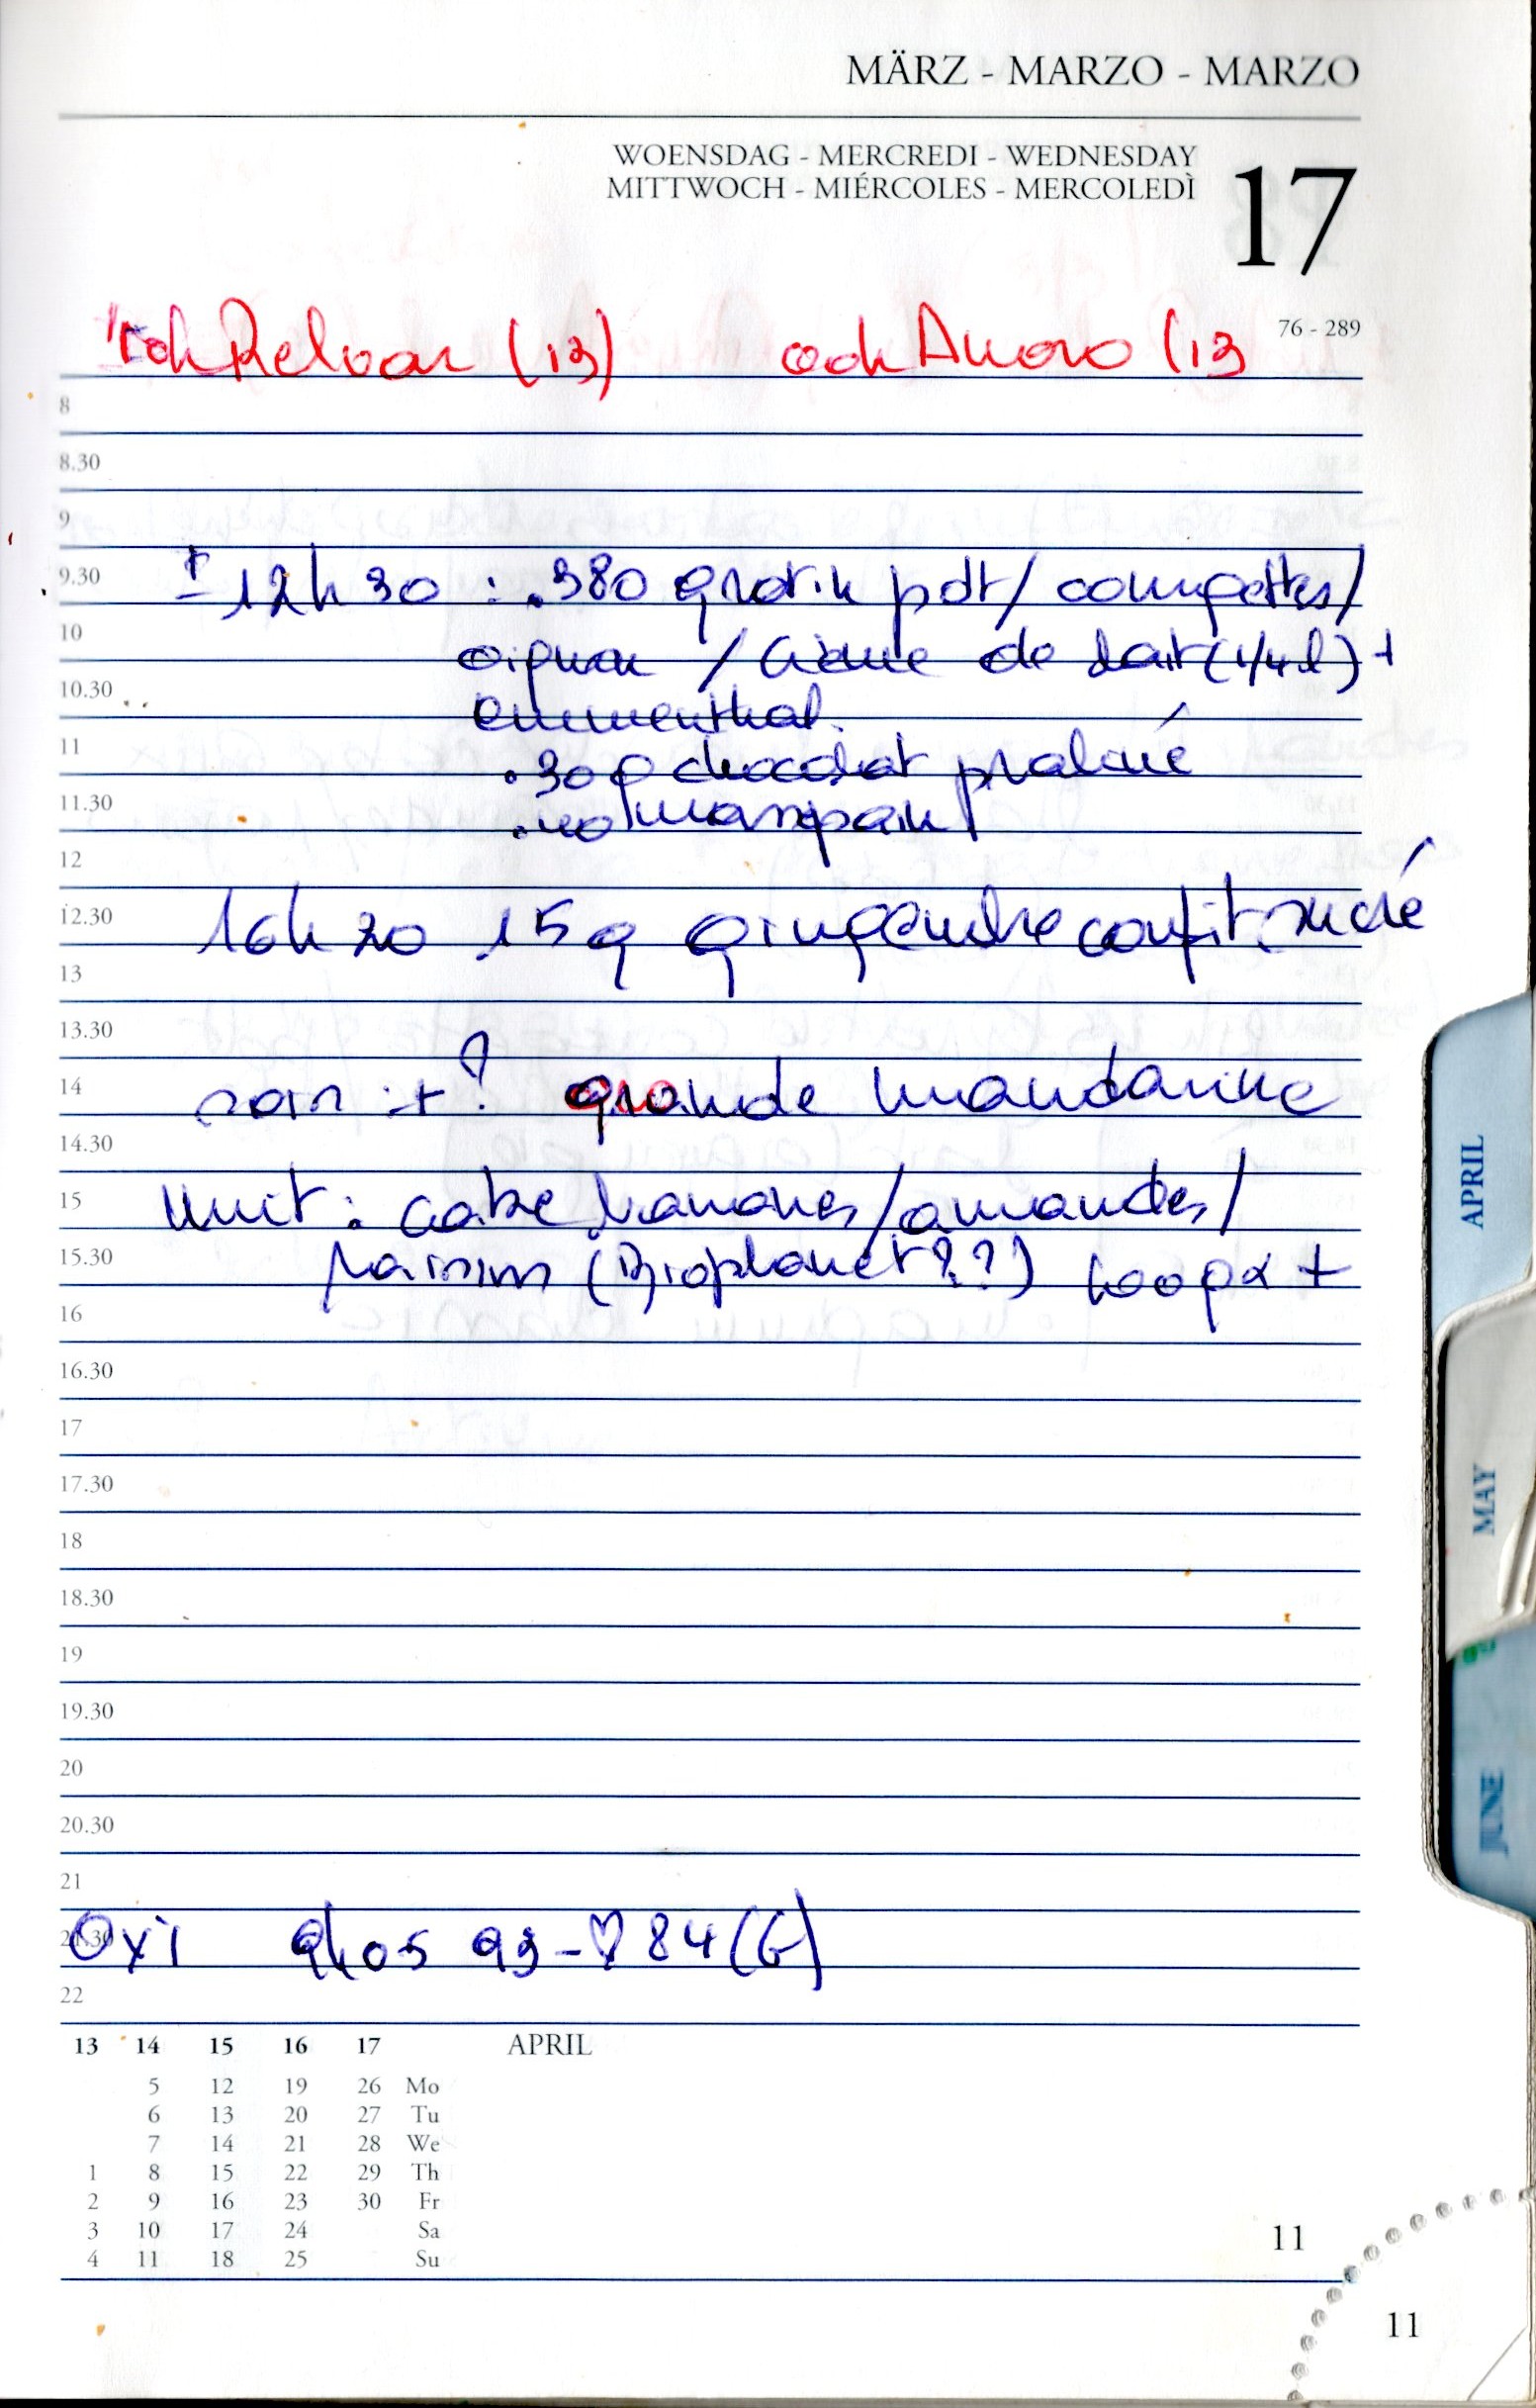 MÄRZ - MARZO - MARZO
WOENSDAG - MERCREDI - WEDNESDAY
MITTWOCH - MIÉRCOLES - MERCOLEDÌ
17
76 - 289
Relvar (13) Anoro (13
8
8.30
9
9.30 ± 12h30 : .380 gratin pdt/courgettes/
10 oignon / crème de lait (1/4 l) +
10.30 emmenthal.
11 .30g chocolat praliné
11.30 .40 marsepain
12
12.30 16h20 15g gingembre confit sucré
13
13.30
14 soir : +? grande mandarine
14.30
15 nuit : cake bananes/amandes/
15.30 raisins (Bioplanet??) +
16
16.30
17
17.30
18
18.30
19
19.30
20
20.30
21
21.30 Oxi 9h05 93-♡84(G)
22
13 14 15 16 17 APRIL
5 12 19 26 Mo
6 13 20 27 Tu
7 14 21 28 We
1 8 15 22 29 Th
2 9 16 23 30 Fr
3 10 17 24 Sa
4 11 18 25 Su
11
11
APRIL
MAY
JUNE